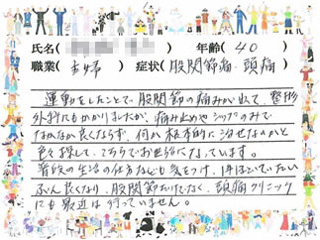 氏名( ) 年齢( 40 )
職業( 主婦 ) 症状( 股関節痛、頭痛 )
運動をしたことで股関節の痛みが出て、整形
外科にもかかりましたが、痛み止めやシップのみで
なかなか良くならず、何か根本的に治せないかと
色々探して、こちらでお世話になっています。
普段の生活の仕方なども気をつけ、1ヶ月ほどでだい
ぶん良くなり、股関節だけでなく、頭痛クリニック
にも最近は行っていません。